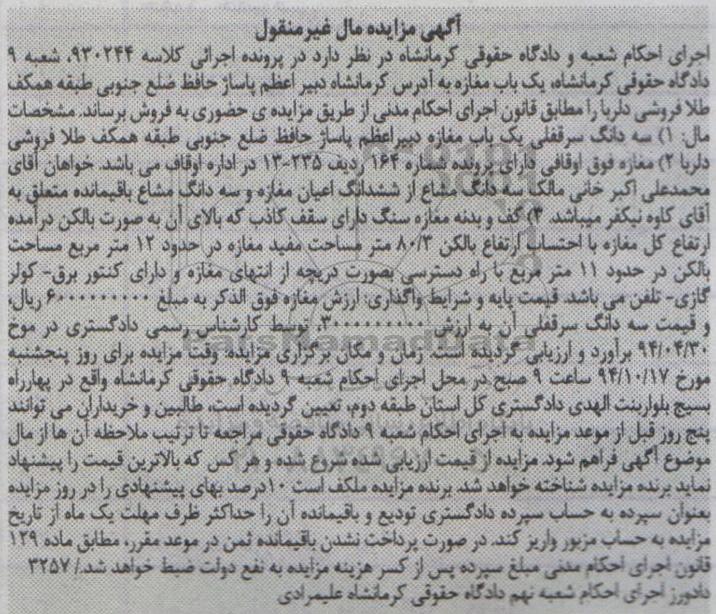 آگهی مزایده مال غیرمنقول
اجرای احکام شعبه و دادگاه حقوقی کرمانشاه در نظر دارد در پرونده اجرائی کلاسه ۹۳۰۲۴۴، شعبه ۹
دادگاه حقوقی کرمانشاه، یک باب مغازه به آدرس کرمانشاه دبیر اعظم پاساژ حافظ ضلع جنوبی طبقه همکف
طلا فروشی دلربا را مطابق قانون اجرای احکام مدنی از طریق مزایده ی حضوری به فروش برساند. مشخصات
مال: ۱) سه دانگ سرقفلی یک باب مغازه دبیراعظم پاساژ حافظ ضلع جنوبی طبقه همکف طلا فروشی
دلربا ۲) مغازه فوق اوقافی دارای پرونده شماره ۱۶۴ ردیف ۲۳۵-۱۳ در اداره اوقاف می باشد. خواهان آقای
محمدعلی اکبر خانی مالک سه دانگ مشاع از ششدانگ اعیان مغازه و سه دانگ مشاع باقیمانده متعلق به
آقای کاوه نیکفر میباشد. ۳) کف و بدنه مغازه سنگ دارای سقف کاذب که بالای آن به صورت بالکن درآمده
ارتفاع کل مغازه با احتساب ارتفاع بالکن ۸۰/۳ متر مساحت مفید مغازه در حدود ۱۲ متر مربع مساحت
بالکن در حدود ۱۱ متر مربع با راه دسترسی بصورت دریچه از انتهای مغازه و دارای کنتور برق- کولر
گازی- تلفن می باشد. قیمت پایه و شرایط واگذاری: ارزش مغازه فوق الذکر به مبلغ ۶۰۰۰۰۰۰۰۰۰۰ ریال،
و قیمت سه دانگ سرقفلی آن به ارزش ۳۰۰۰۰۰۰۰۰۰۰، توسط کارشناس رسمی دادگستری در موخ
۹۴/۰۴/۳۰ برآورد و ارزیابی گردیده است. زمان و مکان برگزاری مزایده: وقت مزایده برای روز پنجشنبه
مورخ ۹۴/۱۰/۱۷ ساعت ۹ صبح در محل اجرای احکام شعبه ۹ دادگاه حقوقی کرمانشاه واقع در چهارراه
بسیج بلواربنت الهدی دادگستری کل استان طبقه دوم، تعیین گردیده است، طالبین و خریداران می توانند
پنج روز قبل از موعد مزایده به اجرای احکام شعبه ۹ دادگاه حقوقی مراجعه تا ترتیب ملاحظه آن ها از مال
موضوع آگهی فراهم شود. مزایده از قیمت ارزیابی شده شروع شده و هر کس که بالاترین قیمت را پیشنهاد
نماید برنده مزایده شناخته خواهد شد. برنده مزایده ملکف است ۱۰درصد بهای پیشنهادی را در روز مزایده
بعنوان سپرده به حساب سپرده دادگستری تودیع و باقیمانده آن را حداکثر ظرف مهلت یک ماه از تاریخ
مزایده به حساب مزبور واریز کند. در صورت پرداخت نشدن باقیمانده ثمن در موعد مقرر، مطابق ماده ۱۲۹
قانون اجرای احکام مدنی مبلغ سپرده پس از کسر هزینه مزایده به نفع دولت ضبط خواهد شد./ ۳۲۵۷
دادورز اجرای احکام شعبه نهم دادگاه حقوقی کرمانشاه علیمرادی